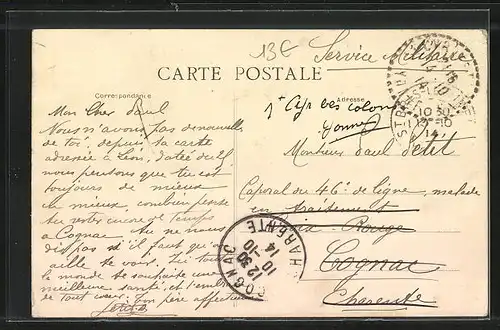 13€
Service Militaire
CARTE POSTALE
Correspondance
Adresse
Mon Cher Paul
Nous n'avons pas de nouvelles
de toi, depuis ta carte
adressée à Léon, datée du
nous pensons que tu est
toujours de mieux
en mieux, combien pense
tu rester encore de temps
a Cognac tu ne nous
dis pas s'il faut qu'on
aille te voir. Ici tout
le monde te souhaite une
meilleure santé, et t'embrasse
de tout cœur. Ton père affectionné
Petit
des colons
Yonne
Monsieur Paul Petit
Caporal du 46e de ligne, malade
en traitement
Croix Rouge
Cognac
Charente
COGNAC
CHARENTE
12 30
10-10
14
10 30
14